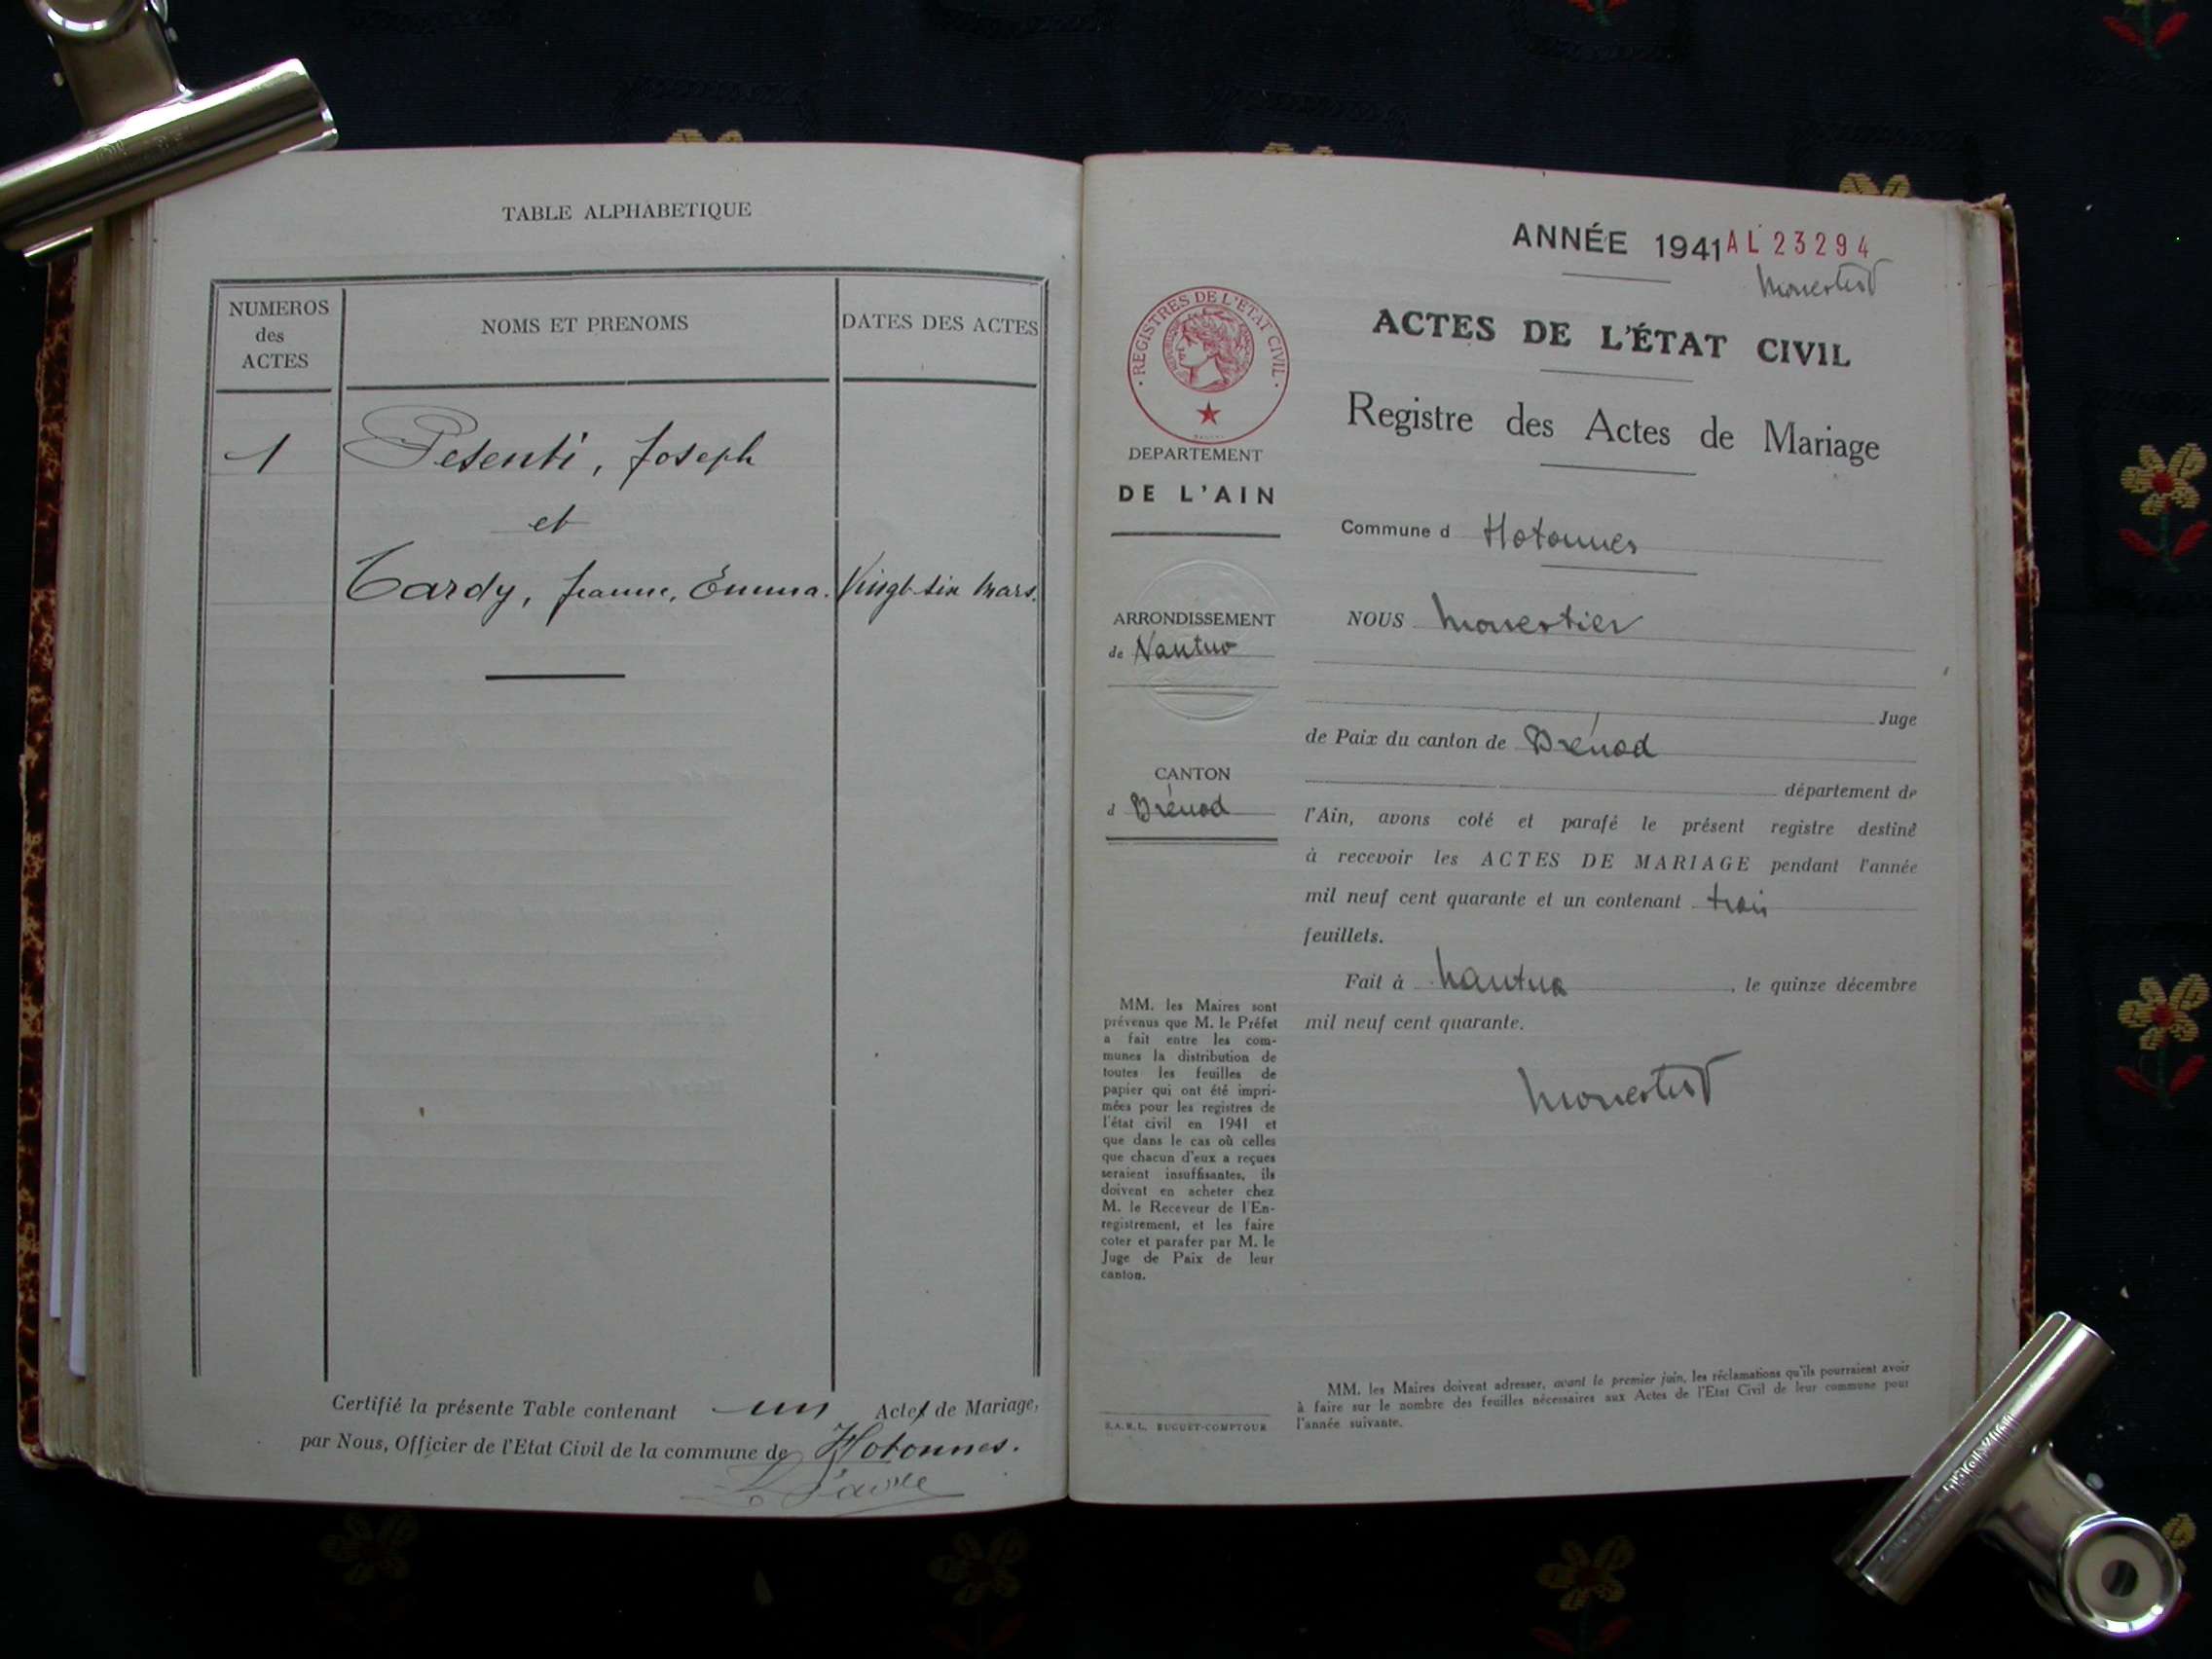 TABLE ALPHABETIQUE
NUMEROS
des
ACTES
NOMS ET PRENOMS
DATES DES ACTES
1
Pesenti, Joseph
et
Tardy, Jeanne, Emma. Vingt-six Mars.
Certifié la présente Table contenant un Actes de Mariage,
par Nous, Officier de l'Etat Civil de la commune de Hotonnes.
ANNÉE 1941 AL 23294
Monestier
REGISTRES DE L'ETAT CIVIL
ACTES DE L'ÉTAT CIVIL
Registre des Actes de Mariage
DEPARTEMENT
DE L'AIN
ARRONDISSEMENT
de Nantua
CANTON
d Brénod
Commune d Hotonnes
NOUS Monestier
Juge
de Paix du canton de Brénod
département de
l'Ain, avons coté et parafé le présent registre destiné
à recevoir les ACTES DE MARIAGE pendant l'année
mil neuf cent quarante et un contenant trois
feuillets.
Fait à Nantua, le quinze décembre
mil neuf cent quarante.
Monestier
MM. les Maires sont
prévenus que M. le Préfet
a fait entre les com-
munes la distribution de
toutes les feuilles de
papier qui ont été impri-
mées pour les registres de
l'état civil en 1941 et
que dans le cas où celles
que chacun d'eux a reçues
seraient insuffisantes, ils
doivent en acheter chez
M. le Receveur de l'En-
registrement, et les faire
coter et parafer par M. le
Juge de Paix de leur
canton.
S.A.R.L. BUGUET-COMPTOUR
MM. les Maires doivent adresser, avant le premier juin, les réclamations qu'ils pourraient avoir
à faire sur le nombre des feuilles nécessaires aux Actes de l'Etat Civil de leur commune pour
l'année suivante.